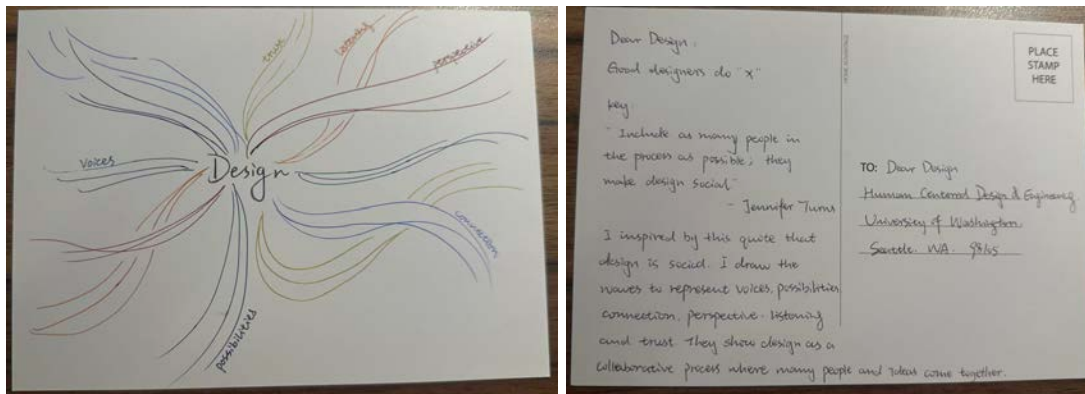 trust
listening
perspective
voices
Design
connection
possibilities
Dear Design,
Good designers do "x"
key
"Include as many people in
the process as possible; they
make design social"
- Jennifer Turns
I inspired by this quite that
design is social. I draw the
waves to represent voices, possibilities
connection, perspective, listening
and trust. They show design as a
collaborative process where many people and ideas come together.
PLACE
STAMP
HERE
TO: Dear Design
Human Centered Design & Engineering
University of Washington
Seattle. WA. 98105